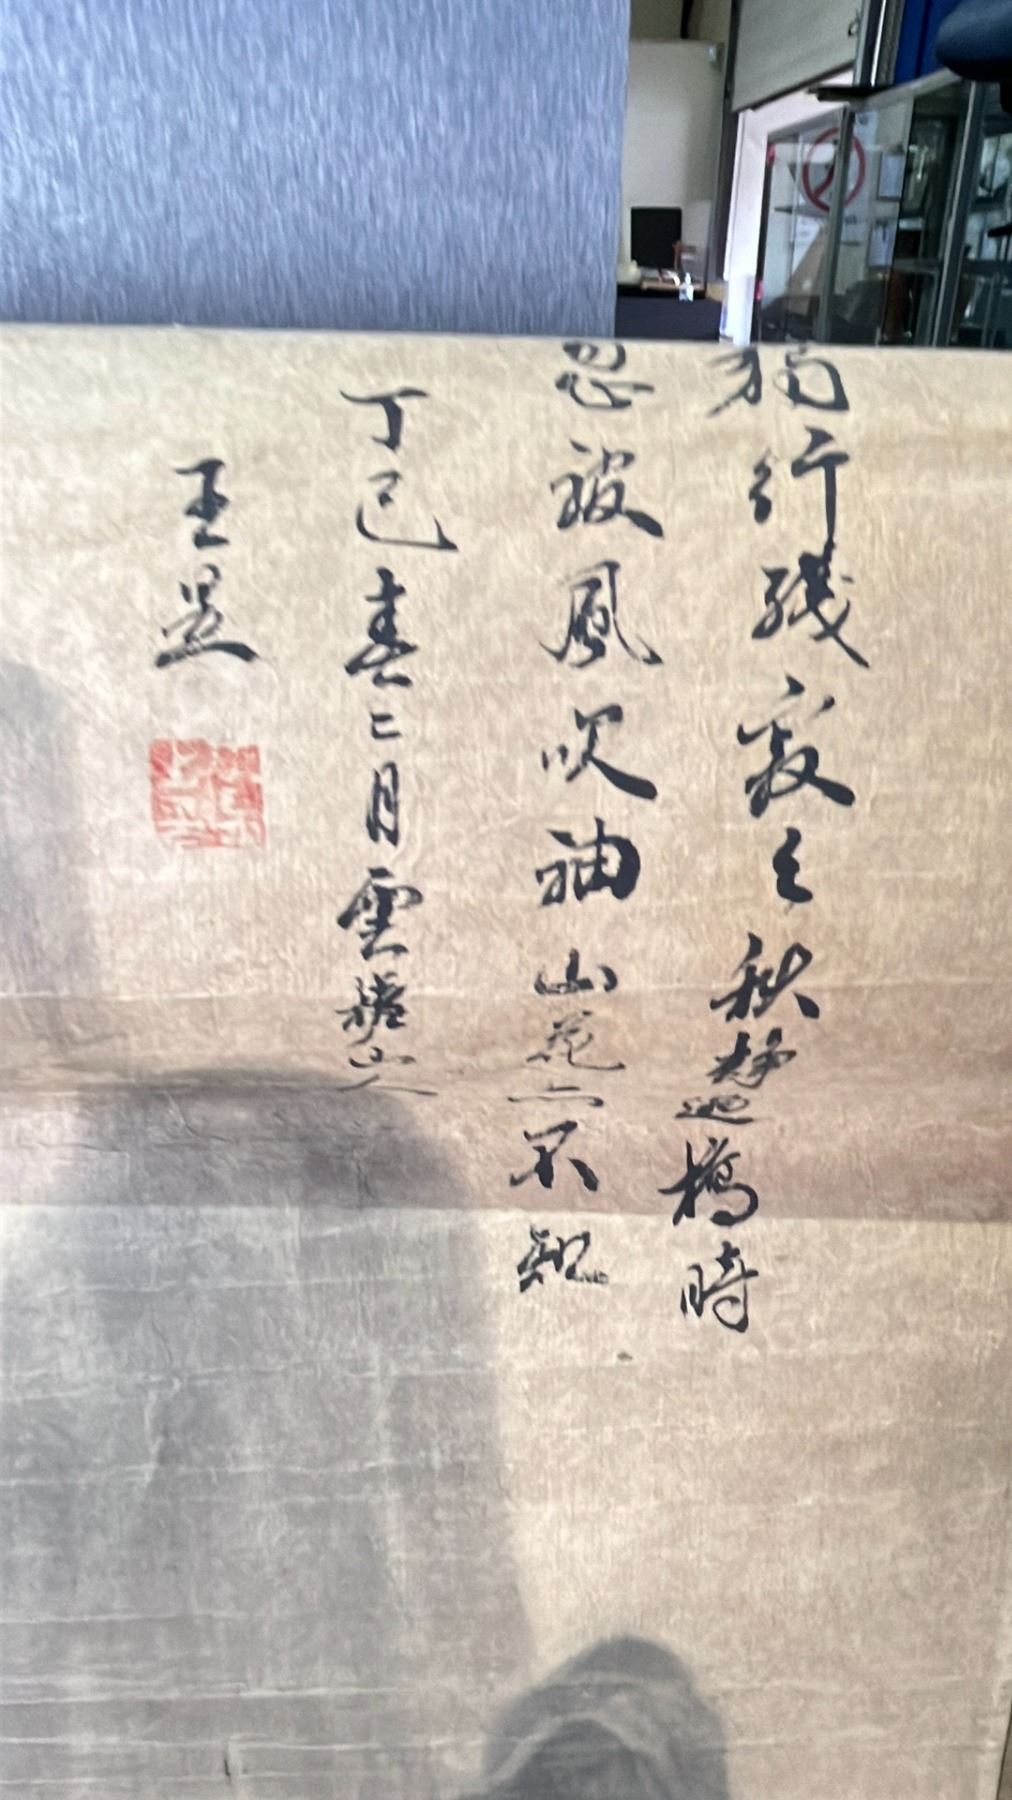 獨行殘寂之秋靜過橋時
忍被風吹袖山花亦不知
丁巳春二月雲樵山人
王昱